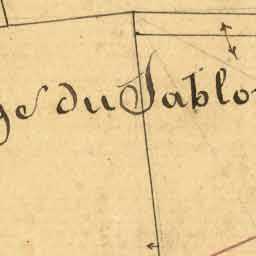 ge du Sablo